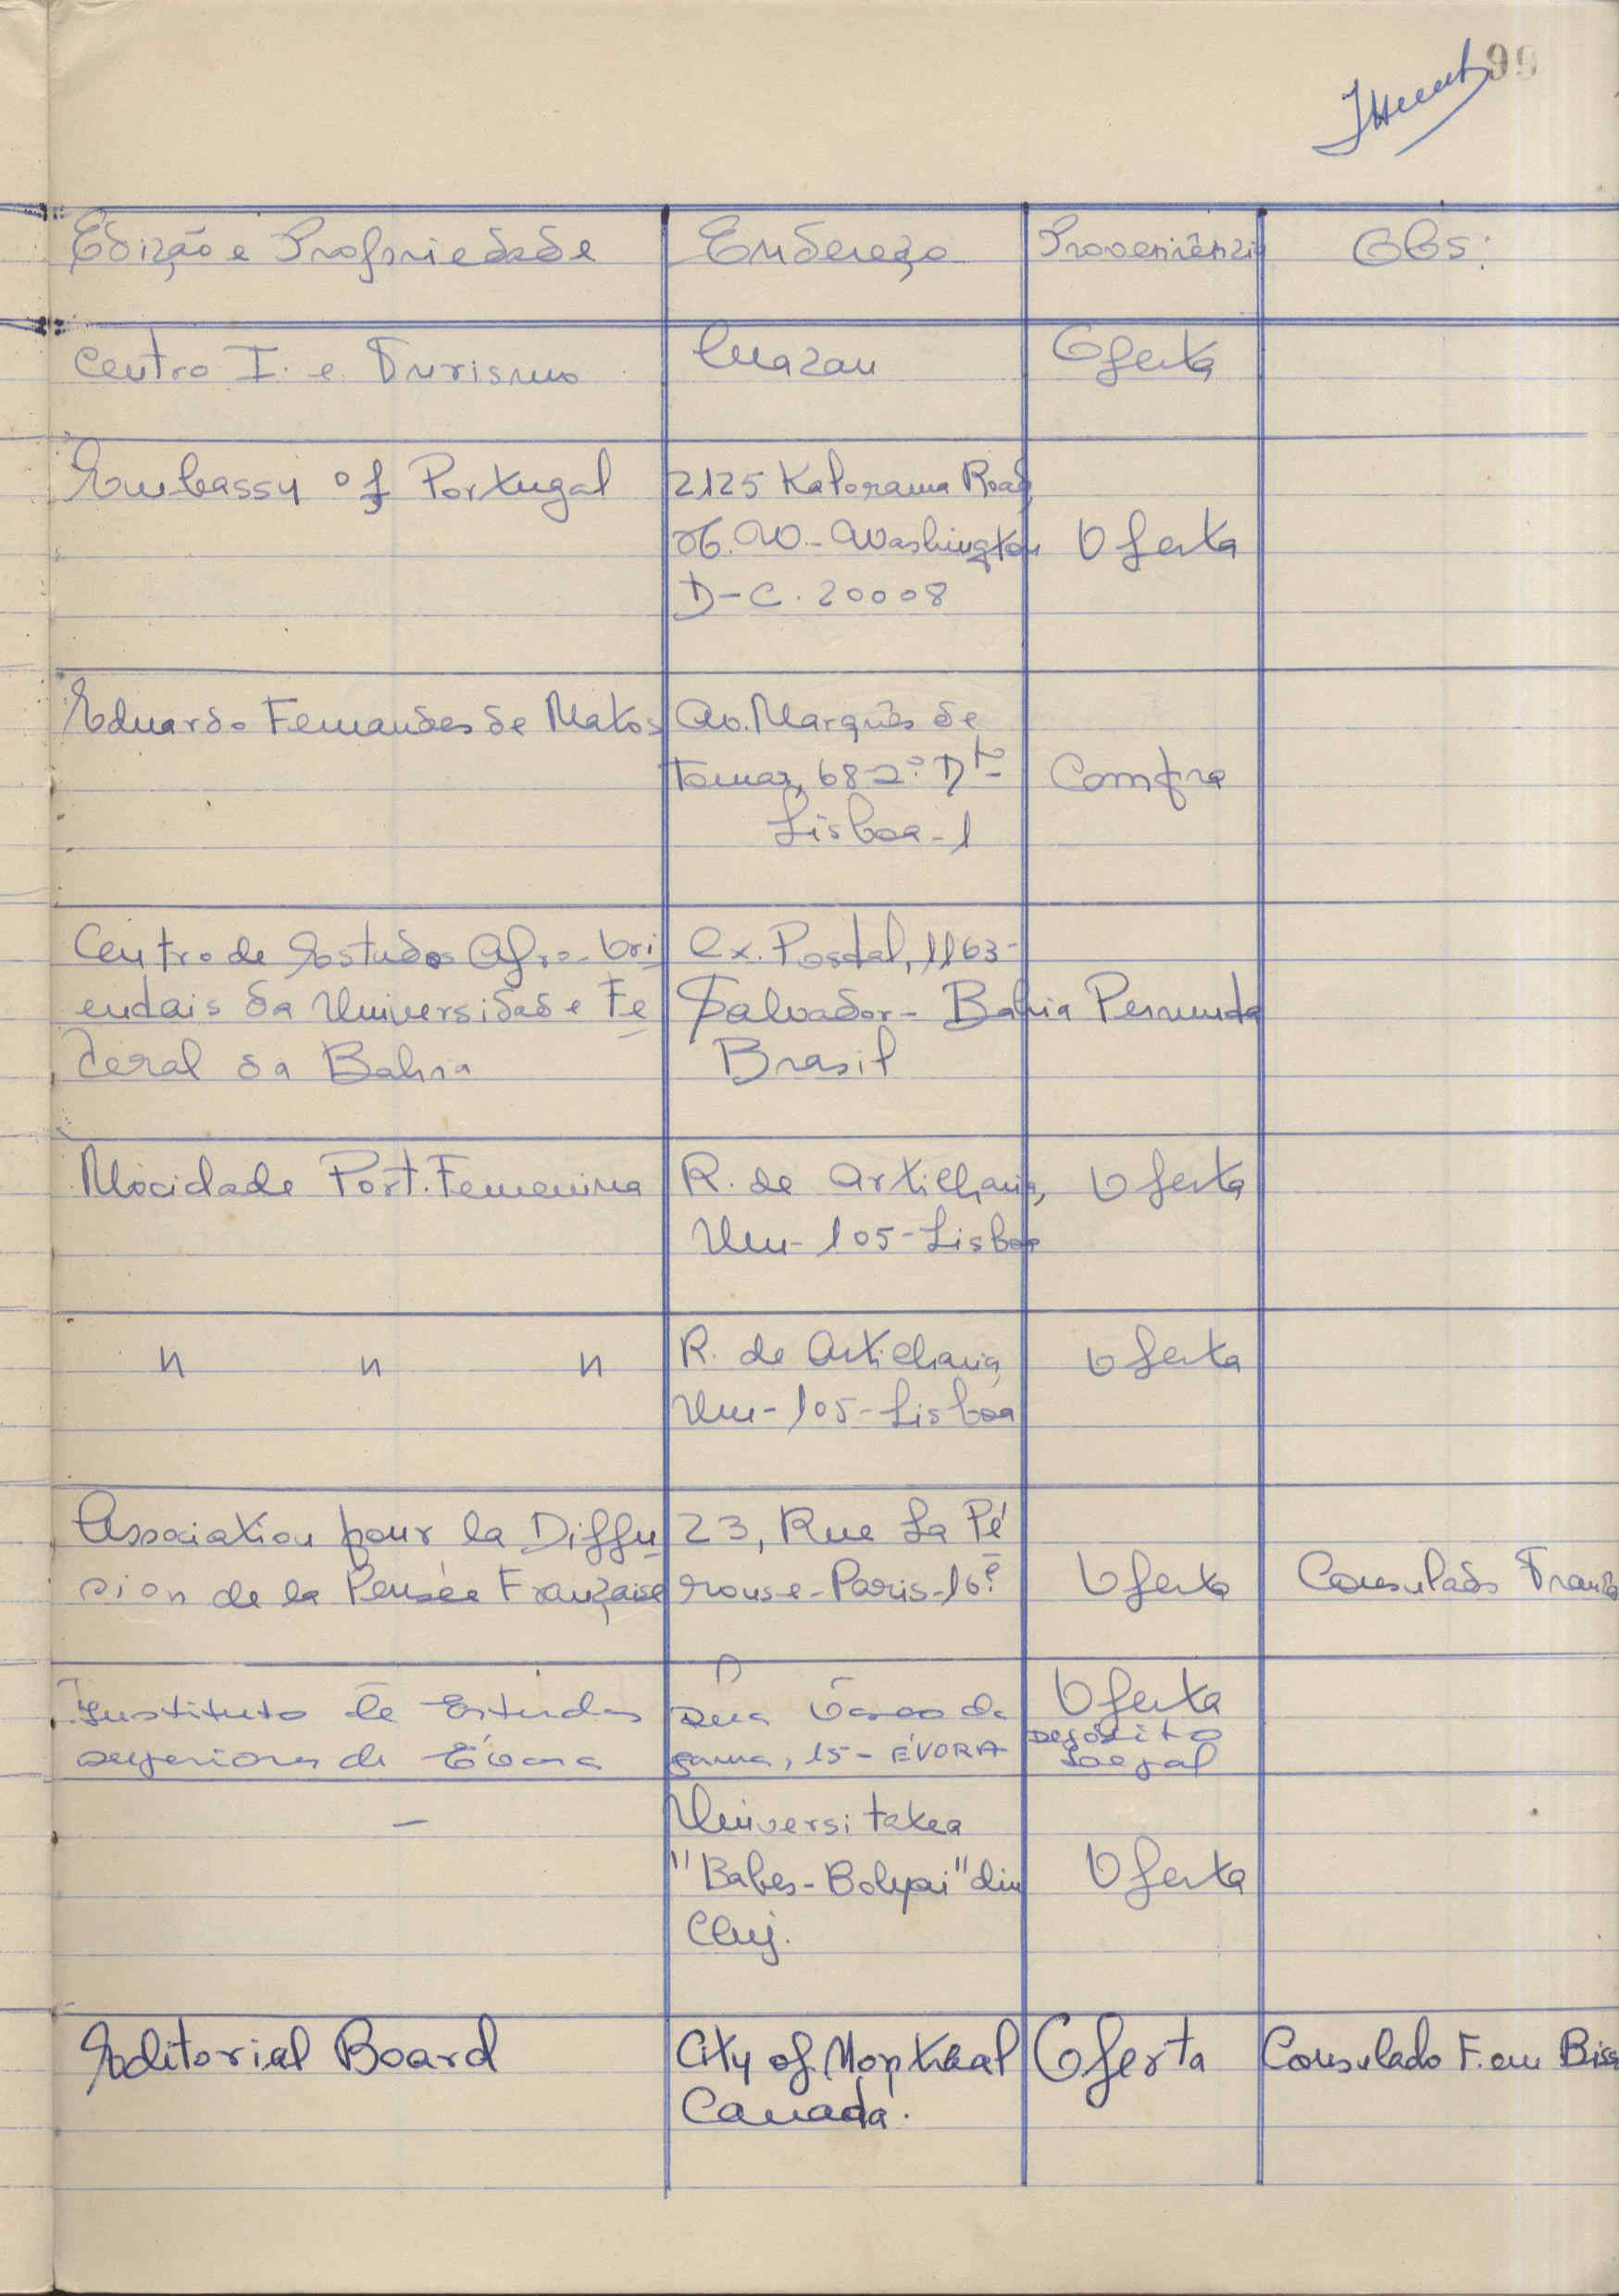 99
Edição e Propriedade Endereço Proveniência Obs:
Centro I. e Turismo Oferta
Embassy of Portugal 2125 Kalorama Road
N. W. - Washington Oferta
D-C. 20008
Eduardo Fernandes de Matos Av. Marquês de
Tomar, 68-2º. Dto Compra
Lisboa-1
Centro de Estudos Afro-Ori Cx. Postal, 1163-
entais da Universidade Fe Salvador - Bahia Permuta
deral da Bahia Brasil
Mocidade Port. Femenina R. de Artilharia, Oferta
Um - 105 - Lisboa
" " " R. de Artilharia, Oferta
Um - 105 - Lisboa
Association pour la Diffu 23, Rue La Pé
sion de la Pensée Française rouse - Paris - 16e. Oferta Consulado Franç
Oferta
Instituto de Estudos Rua Vasco da Depósito
superiores de Évora gama, 15 - ÉVORA Legal
- Universitatea
"Babes-Bolyai" din Oferta
Cluj.
Editorial Board City of Montreal Oferta Consulado F. em Biss
Canadá.